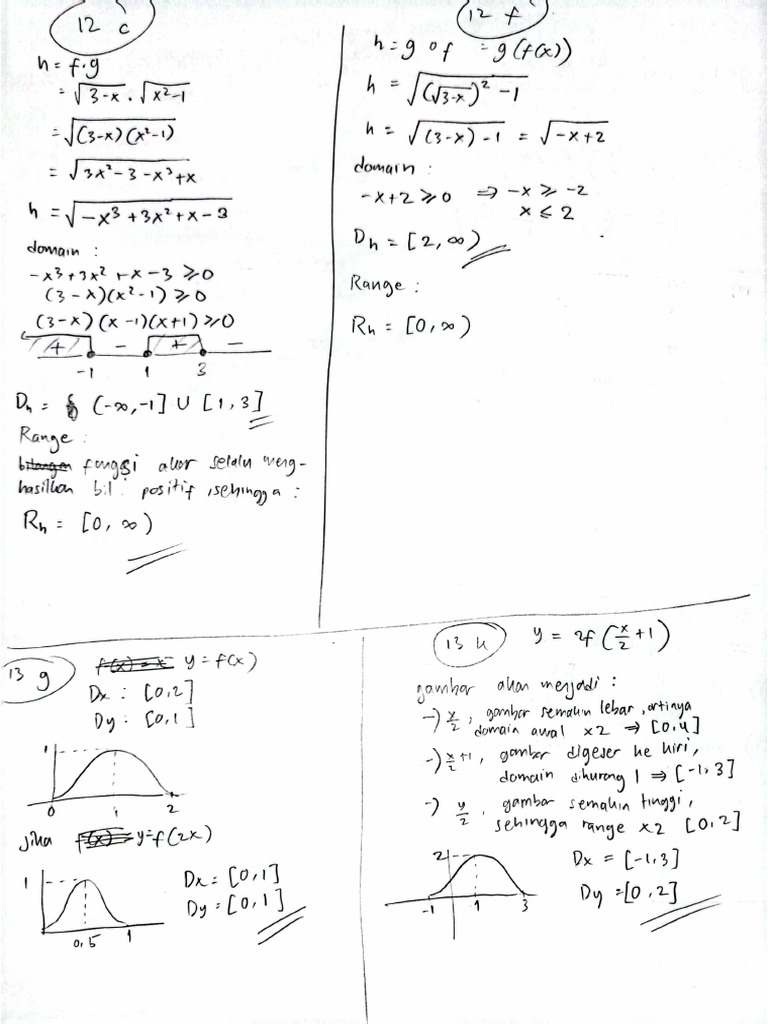 12 c
h = f.g
= √(3-x) . √(x²-1)
= √((3-x)(x²-1))
= √(3x²-3-x³+x)
h = √(-x³+3x²+x-3)
domain :
-x³+3x²+x-3 ≥ 0
(3-x)(x²-1) ≥ 0
(3-x)(x-1)(x+1) ≥ 0
+ - + -
-1 1 3
Dh = (-∞,-1] ∪ [1,3]
Range :
bilangan fungsi akar selalu meng-
hasilkan bil. positif, sehingga :
Rh = [0, ∞)
12 f
h = g o f = g(f(x))
h = √((√(3-x))² - 1)
h = √((3-x)-1) = √(-x+2)
domain :
-x+2 ≥ 0 ⇒ -x ≥ -2
x ≤ 2
Dh = [2, ∞)
Range :
Rh = [0, ∞)
13 g f(x) = x y = f(x)
Dx : [0,2]
Dy : [0,1]
1
0 1 2
jika f(x) y=f(2x)
1
0,5 1
Dx = [0,1]
Dy = [0,1]
13 k y = 2f(x/2 + 1)
gambar akan menjadi :
-) x/2, gambar semakin lebar, artinya
domain awal x2 ⇒ [0,4]
-) x/2+1, gambar digeser ke kiri,
domain dikurang 1 ⇒ [-1,3]
-) y/2, gambar semakin tinggi,
sehingga range x2 [0,2]
2
-1 1 3
Dx = [-1,3]
Dy = [0,2]